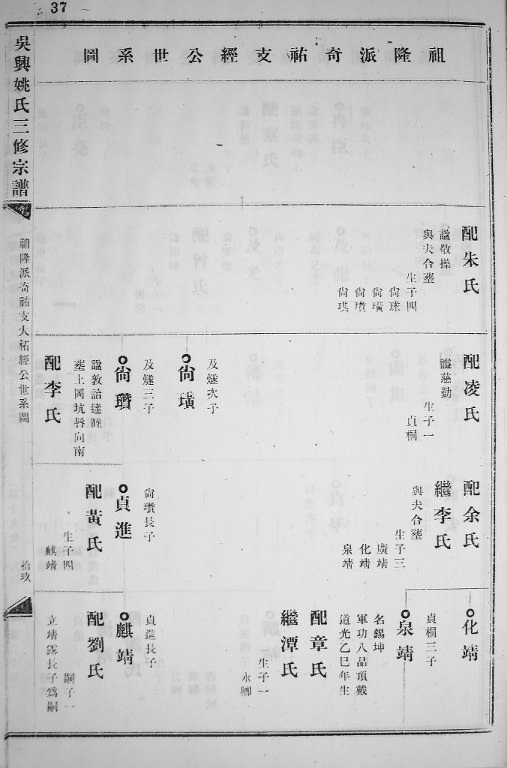 37
祖隆派奇祐支經公世系圖
吳興姚氏三修宗譜
祖隆派尙祐支大柘經公世系圖
拾玖
配朱氏
諡敬操
與夫合塟
生子四
尙珠
尙璜
尙瓚
尙琪
配凌氏
諡慈勤
生子一
貞桐
尙璜
及燧次子
尙瓚
及燧三子
諡敦詒達
塟土岡坑唇向南
配李氏
配余氏
繼李氏
與夫合塟
生子三
廣靖
化靖
泉靖
貞進
尙瓚長子
配黃氏
生子四
麒靖
化靖
貞桐二子
泉靖
名錫坤
軍功八品頂戴
道光乙巳年生
配章氏
繼潭氏
生子一
永
麒靖
貞進長子
配劉氏
嗣子一
立靖長子爲嗣